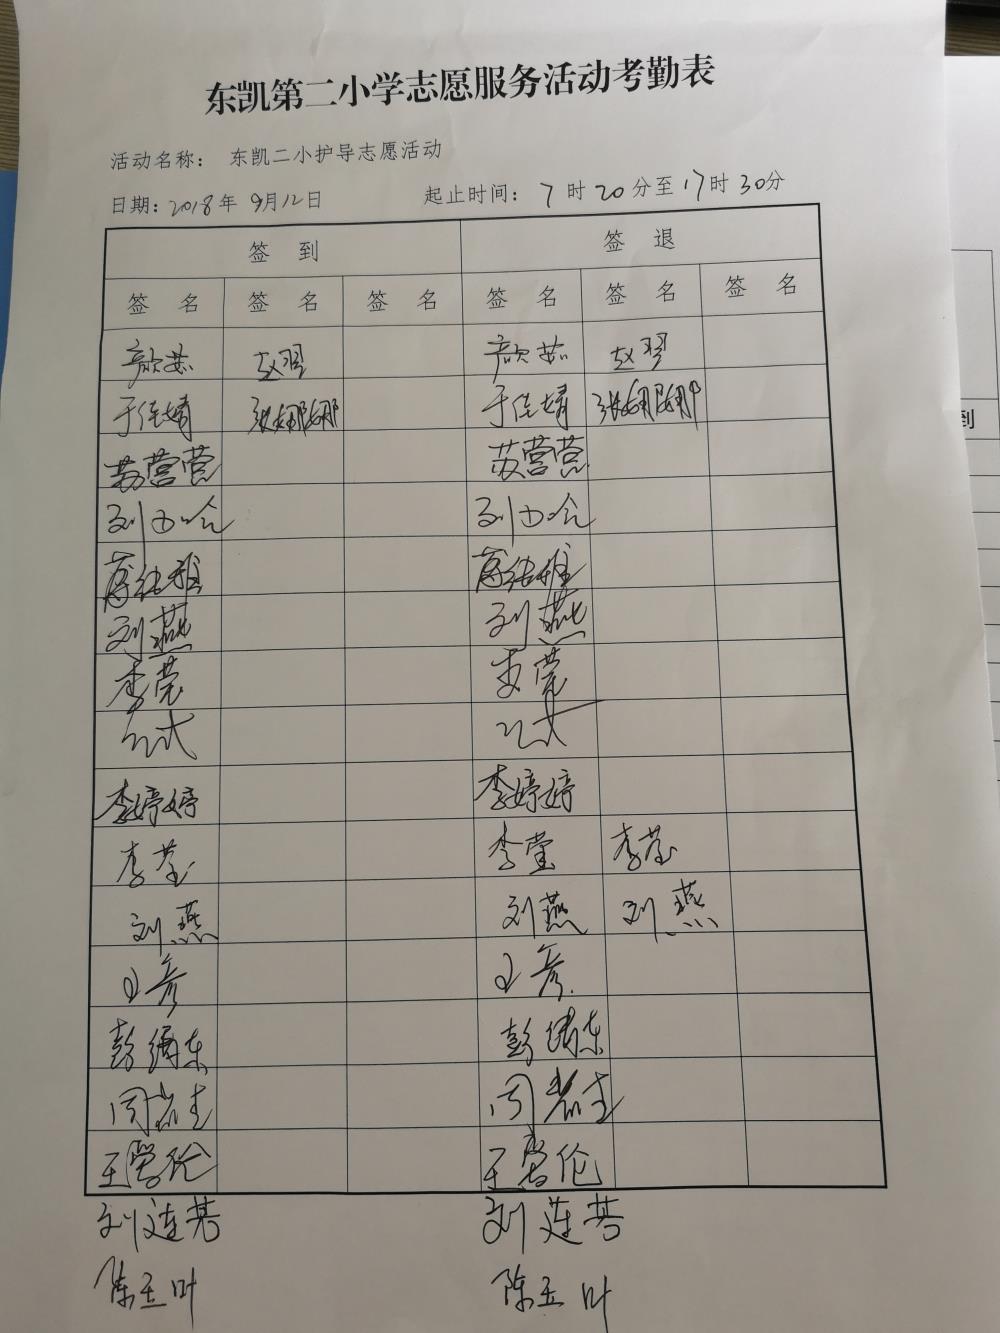 东凯第二小学志愿服务活动考勤表
活动名称： 东凯二小护导志愿活动
日期：2018年 9月12日 起止时间：7时20分至17时30分
签 到 签 退
签 名 签 名 签 名 签 名 签 名 签 名
赵翠 赵翠
于佳婧 张娜娜 于佳婧 张娜娜
苏营营 苏营营
刘 刘
蒋 雅 蒋 雅
刘燕 刘燕
李莞 李莞
李婷婷 李婷婷
李莹 李莹 李莹
刘燕 刘燕 刘燕
王彦 王彦
彭绣东 彭绣东
周 周
王学伦 王学伦
刘连芹 刘莲芹
陈玉叶 陈玉叶
到